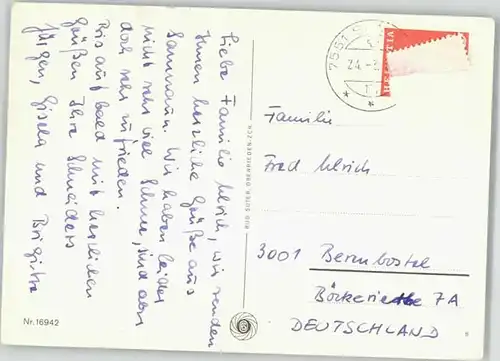 Liebe Familie Ulrich, wir senden
Ihnen herzliche Grüße aus
Samnaun. Wir haben leider
nicht sehr viel Schnee, sind aber
doch sehr zufrieden.
Bis auf bald mit herzlichen
Grüßen Ihre Schneiders
Jürgen, Gisela und Brigitte
Nr. 16942
RUD. SUTER, OBERRIEDEN-ZCH.
7551
24.-
HELVETIA
Familie
Fred Ulrich
3001 Bernbostel
7A
DEUTSCHLAND